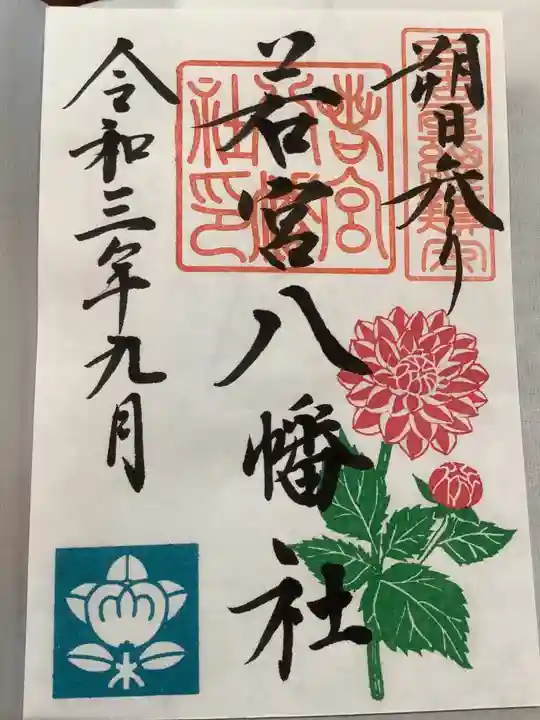 朔日参り
若宮八幡社
若宮八幡社印
令和三年九月